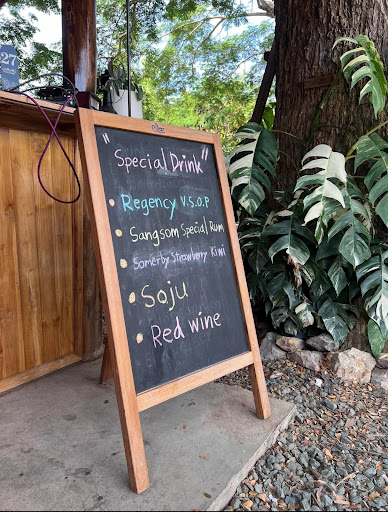 27
"Special Drink"
Regency V.S.O.P
Sangsom Special Rum
Somerby Strawberry Kiwi
Soju
Red wine